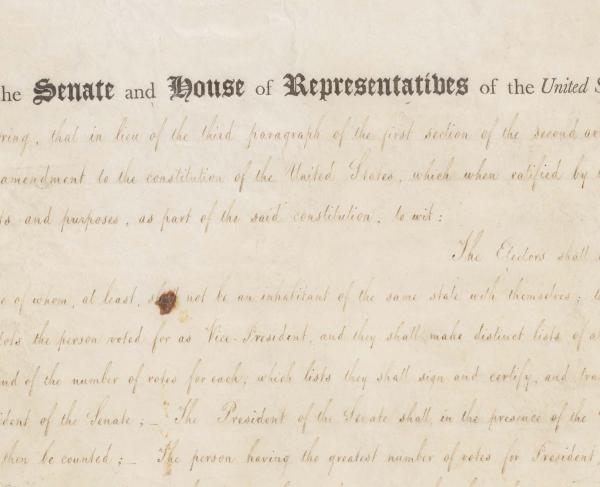 he Senate and House of Representatives of the United S
ring, that in lieu of the third paragraph of the first section of the second ar
amendment to the constitution of the United States, which when ratified by
ts and purposes, as part of the said constitution, to wit:
The Electors shall
e of whom, at least, shall not be an inhabitant of the same state with themselves; t
tors the person voted for as Vice-President, and they shall make distinct lists of a
nd of the number of votes for each, which lists they shall sign and certify, and tra
ident of the Senate; — The President of the Senate shall, in the presence of the
then be counted; — The person having the greatest number of votes for President,